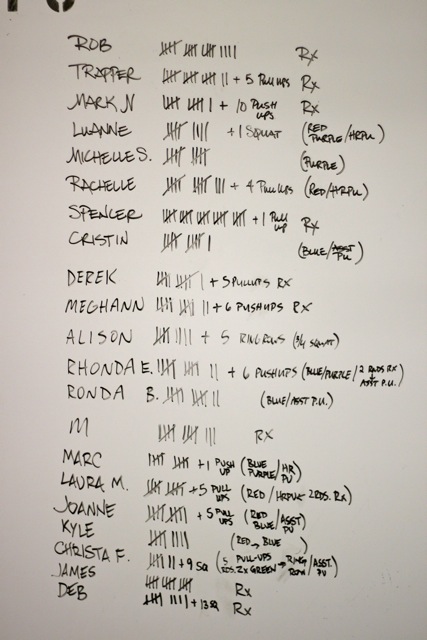 ROB Rx
TRAPPER + 5 PULLUPS Rx
MARK N + 10 PUSH UPS Rx
LUANNE + 1 SQUAT (RED PURPLE/HRPU)
MICHELLE S. (PURPLE)
RACHELLE + 4 PULLUPS (RED/HRPU)
SPENCER + 1 PULL UP Rx
CRISTIN (BLUE/ASST PU)
DEREK + 5 PULLUPS RX
MEGHANN + 6 PUSHUPS RX
ALISON + 5 RING ROWS (3/4 SQUAT)
RHONDA E. + 6 PUSHUPS (BLUE/PURPLE/2 RNDS RX ASST P.U.)
RONDA B. (BLUE/ASST P.U.)
M RX
MARC + 1 PUSH UP (BLUE PURPLE/HR PU)
LAURA M. + 5 PULL UPS (RED/HRPU 2 RDS. RX)
JOANNE + 5 PULL UPS (RED BLUE/ASST PU)
KYLE (RED → BLUE)
CHRISTA F. + 9 SQ (5 PULL-UPS RDS. 2X GREEN → RING ROW/ASST. PU)
JAMES Rx
DEB + 13 SQ Rx